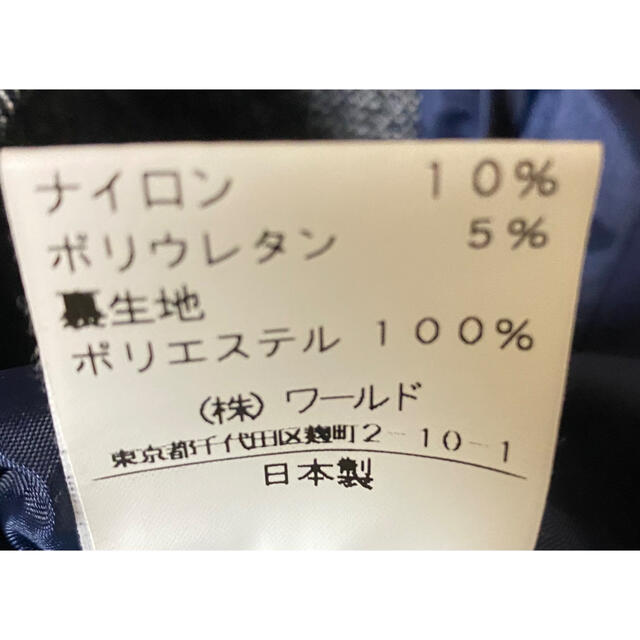 ナイロン 10%
ポリウレタン 5%
裏生地
ポリエステル 100%
(株)ワールド
東京都千代田区麹町2-10-1
日本製